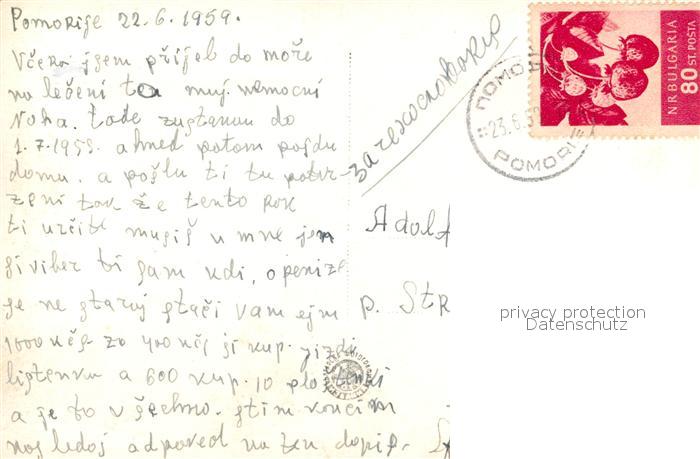 Pomorije 22.6.1959.
Včera jsem přijel do moře
na lečeni to muj nemocni
Noha. tade zustanu do
1.7.1959. ahned potom pojdu
domu. a pošlu ti tu potvr-
zeni tak že tento rok
ti určite musiš u mne jen
si viber ti sam kdi, o penize
se ne staruj stači vam ejm
1000 kčs za 400 kčs si kup. jizdi
listenku a 600 kup. 10 plo
a je to všechno. stim končim
nas ledoj adpoved na ten dopis.
за чехословакию
Adolf
p. Str
ПОМО
23.6.59
POMORIE
N R BULGARIA
80 ST. POŠTA
privacy protection
Datenschutz